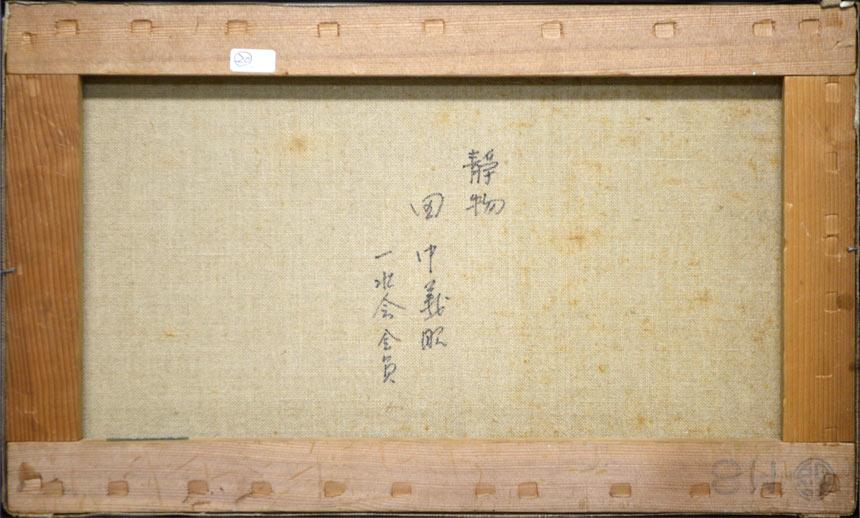 静物
田中義昭
一水会会員
20